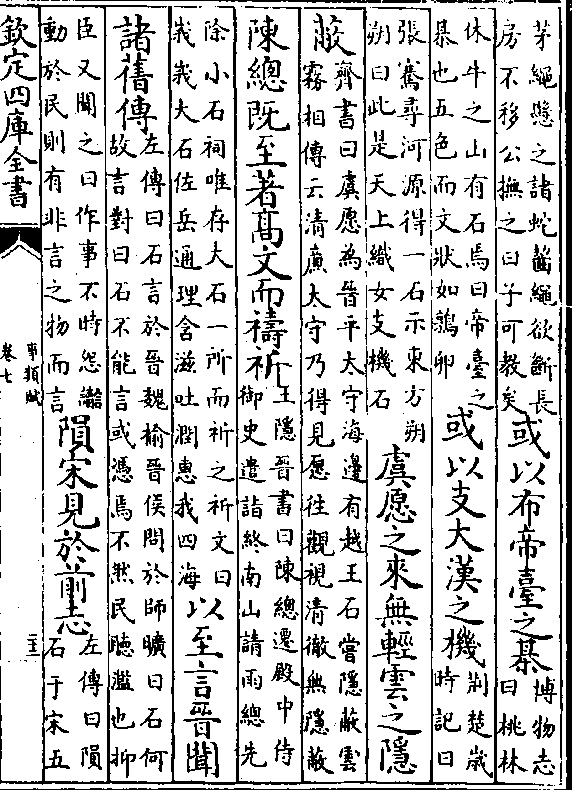 茅繩懸之諸蛇齧繩欲斷長
房不移公撫之曰子可教矣
或以布帝臺之棊
博物志
曰桃林
休牛之山有石焉曰帝臺之
棊也五色而文狀如鶉卵
或以支大漢之機
荆楚歲
時記曰
張騫尋河源得一石示東方朔
朔曰此是天上織女支機石
虞愿之來無輕雲之隱
蔽
齊書曰虞愿為晉平太守海邊有越王石嘗隱蔽雲
霧相傳云清廉太守乃得見愿往觀視清徹無隱蔽
陳總既至著高文而禱祈
王隱晉書曰陳總遷殿中侍
御史遣詣終南山請雨總先
除小石祠唯存大石一所而祈之祈文曰
峩峩大石佐岳通理含滋吐潤惠我四海
以至言晉聞
諸舊傳
左傳曰石言於晉魏榆晉侯問於師曠曰石何
故言對曰石不能言或憑焉不然民聽濫也抑
臣又聞之曰作事不時怨讟
動於民則有非言之物而言
隕宋見於前志
左傳曰隕
石于宋五
欽定四庫全書
事類賦
卷七